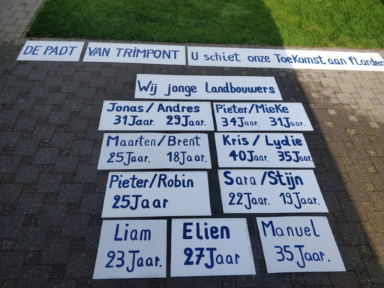 DE PADT VAN TRIMPONT U schiet onze Toekomst aan flarden
Wij jonge Landbouwers
Jonas/Andres
31Jaar. 29Jaar.
Pieter/Mieke
34Jaar. 31Jaar.
Maarten/Brent
25Jaar. 18Jaar.
Kris/Lydie
40Jaar. 35Jaar.
Pieter/Robin
25Jaar
Sara/Stijn
22Jaar. 19Jaar.
Liam
23Jaar.
Elien
27Jaar
Manuel
35Jaar.